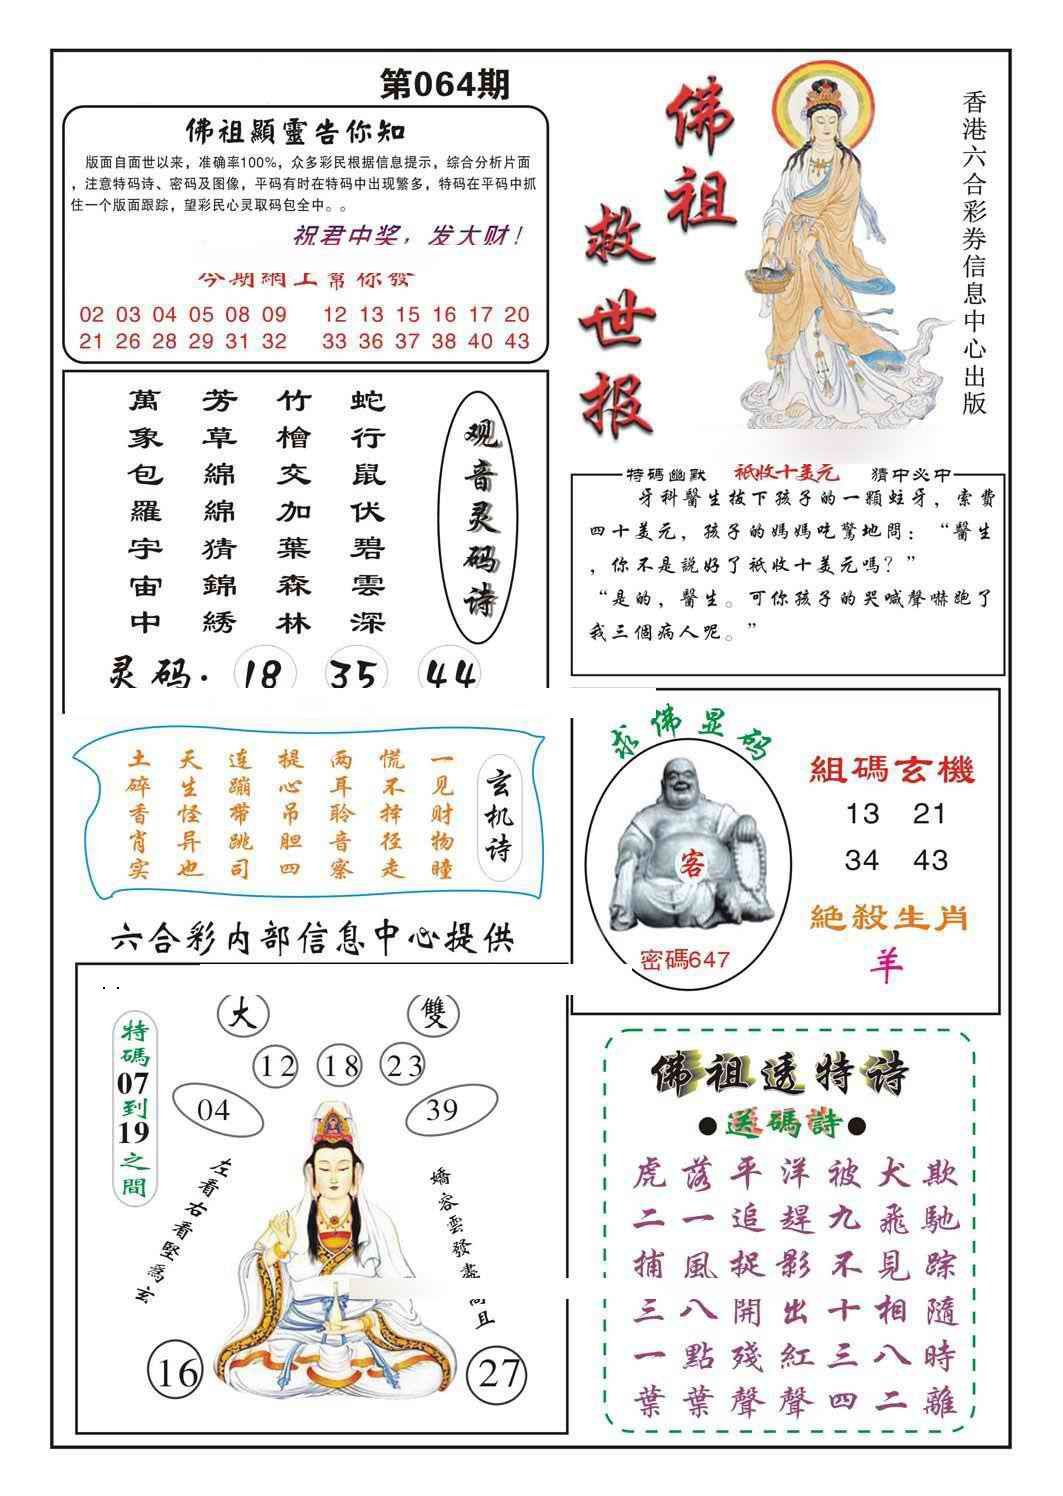 第064期
佛祖顯靈告你知
版面自面世以来，准确率100%，众多彩民根据信息提示，综合分析片面
，注意特码诗、密码及图像，平码有时在特码中出现繁多，特码在平码中抓
住一个版面跟踪，望彩民心灵取码包全中。。
祝君中奖，发大财！
今期網上幫你發
02 03 04 05 08 09 12 13 15 16 17 20
21 26 28 29 31 32 33 36 37 38 40 43
佛祖
救世报
香港六合彩券信息中心出版
观音灵码诗
蛇行鼠伏碧雲深
竹檜交加葉森林
芳草綿綿猜錦綉
萬象包羅宇宙中
灵码：18 35 44
特碼幽默 祇收十美元 猜中必中
牙科醫生拔下孩子的一顆蛀牙，索費
四十美元，孩子的媽媽吃驚地問：“醫生
，你不是說好了祇收十美元嗎？”
“是的，醫生。可你孩子的哭喊聲嚇跑了
我三個病人呢。”
玄机诗
一见财物瞳
慌不择径走
两耳聆音察
提心吊胆四
连蹦带跳司
天生怪异也
土碎香肖实
求佛显码
客
密碼647
組碼玄機
13 21
34 43
絕殺生肖
羊
六合彩内部信息中心提供
大 雙
12 18 23
04 39
特碼07到19之間
左看右看堅爲玄
嬌容雲發盡
且
16 27
佛祖透特诗
●送碼詩●
虎落平洋被犬欺
二一追趕九飛馳
捕風捉影不見踪
三八開出十相隨
一點殘紅三八時
葉葉聲聲四二離